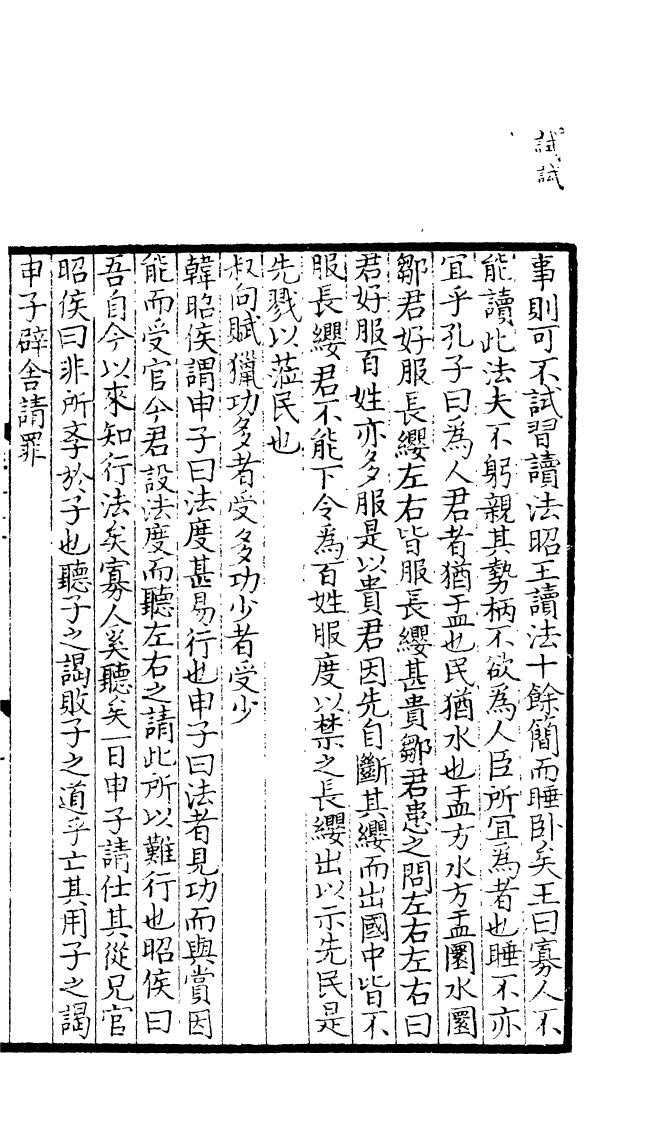 試試
事則可不試習讀法昭王讀法十餘簡而睡卧矣王曰寡人不
能讀此法夫不躬親其勢柄不欲為人臣所宜為者也睡不亦
宜乎孔子曰為人君者猶盂也民猶水也盂方水方盂圜水圜
鄒君好服長纓左右皆服長纓甚貴鄒君患之問左右左右曰
君好服百姓亦多服是以貴君因先自斷其纓而出國中皆不
服長纓君不能下令為百姓服度以禁之長纓出以示先民是
先戮以蒞民也
叔向賦獵功多者受多功少者受少
韓昭侯謂申子曰法度甚易行也申子曰法者見功而與賞因
能而受官今君設法度而聽左右之請此所以難行也昭侯曰
吾自今以來知行法矣寡人奚聽矣一日申子請仕其從兄官
昭侯曰非所斈於子也聽子之謁敗子之道乎亡其用子之謁
申子辟舍請罪